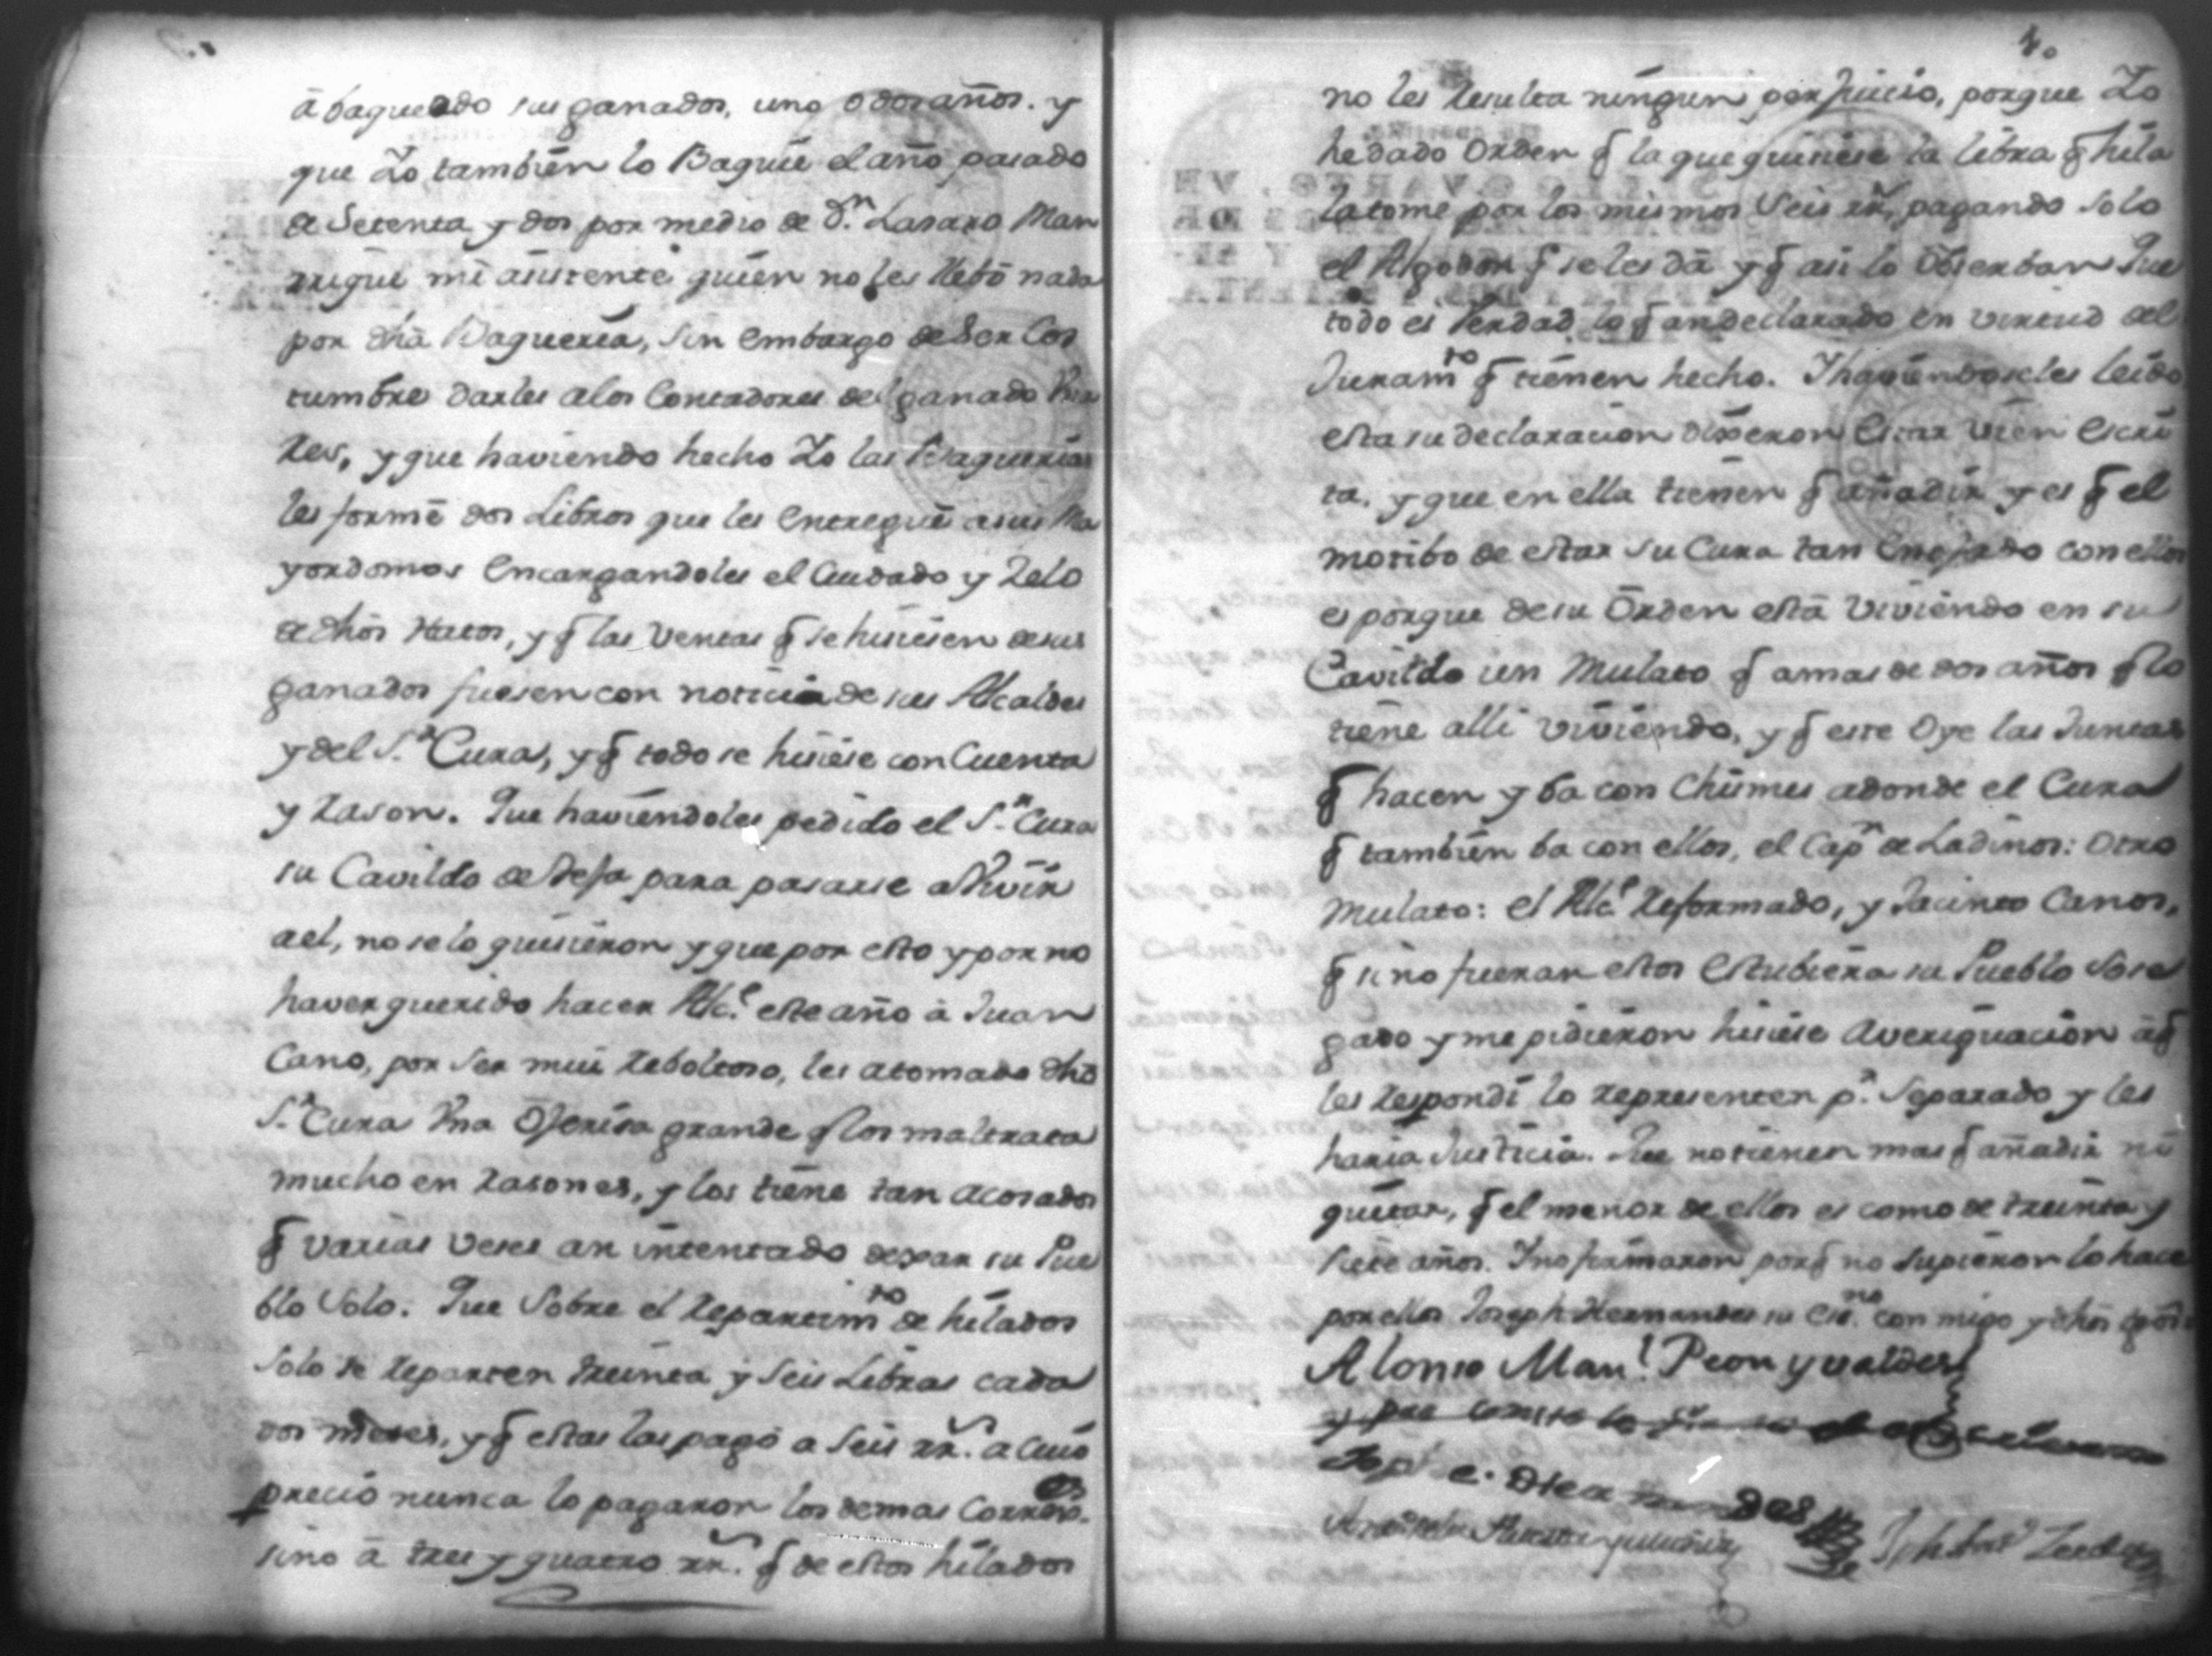 à baqueado sus ganados, uno o dos años. y
que Yo tambien lo Baquié el año pasado
de Setenta y dos por medio de Dn. Lasaro Man
rrique mi asistente quien no les llebó nada
por dha Baqueria, sin embargo de Ser Cos
tumbre darles a los Contadores del ganado
Res, y que haviendo hecho Yo las Baquerias
les formé dos Libros que les Entregué a sus Ma
yordomos Encargandoles el Cuidado y Zelo
de dhos Hatos, y q̃ las Ventas q̃ se hisiesen de sus
ganados fuesen con noticia de sus Alcaldes
y del Sr. Cura, y q̃ todo se hisiese con Cuenta
y rason. Que haviendoles pedido el Sr. Cura
su Cavildo de Tefa para pasarse a Vivir
a el, no se lo quisieron y que por esto y por no
haver querido hacer Alce. este año à Juan
Cano, por Ser mui reboltoso, les a tomado dho
Sr. Cura Vna Ojerisa grande q̃ los maltrata
mucho en rasones, y los tiene tan acosados
q̃ varias veses an intentado dexar su Pue
blo Solo. Que Sobre el repartimto de hilados
solo se reparten treinta y Seis Libras cada
dos meses, y q̃ estas las pagó a Seis rr. a Cuio
precio nunca lo pagaron los demas Corres.
sino à tres y quatro rr. q̃ de estos hilados
4.
no les resulta ningun perjuicio, porque Yo
he dado Orden q̃ la que quisiese la libra q̃ hila
la tome por los mismos Seis rr, pagando Solo
el Algodon q̃ se les dà y q̃ asi lo Observan Que
todo es Verdad lo q̃ an declarado en virtud del
Juramto q̃ tienen hecho. Y haviendoseles leido
esta su declaracion dixeron Estar vien Escri
ta. y que en ella tienen q̃ añadir y es q̃ el
motibo de estar su Cura tan Enojado con ellos
es porque de su Orden està viviendo en su
Cavildo un Mulato q̃ a mas de dos años q̃ lo
tiene alli viviendo, y q̃ este Oye las Juntas
q̃ hacen y ba con Chismes adonde el Cura
q̃ tambien ba con ellos, el Capn de Ladinos: Otro
Mulato: el Alce. reformado, y Jacinto Canos,
q̃ si no fueran estos Estubiera su Pueblo Sose
gado y me pidieron hisiese Averiguacion à q̃
les respondí lo representen pr. Separado y les
haria Justicia. Que no tienen mas q̃ añadir ni
quitar, q̃ el menor de ellos es como de treinta y
siete años. Y no firmaron porq̃ no supieron lo hace
por ellos Joseph Hernandes su Esno. con migo y dhos tgos
Alonso Manl. Peon y valdes